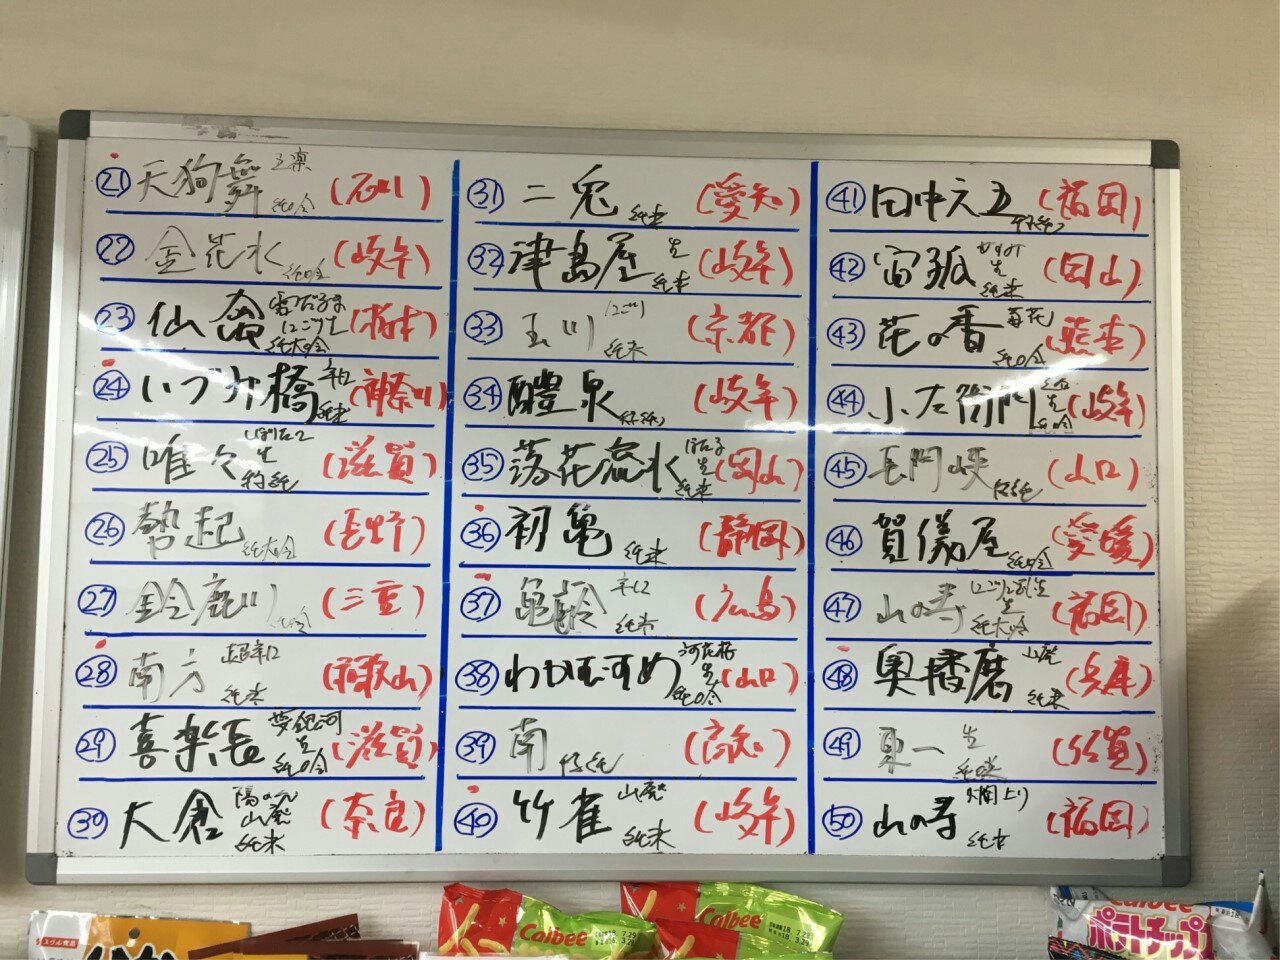 ㉑ 天狗舞 純吟 (石川)
㉒ 金花水 純吟 (岐阜)
㉓ 仙禽 雪だるま にごり生 純大吟 (栃木)
㉔ いづみ橋 辛口 純米 (神奈川)
㉕ 唯々 しぼりたて 生 特純 (滋賀)
㉖ 勢起 純大吟 (長野)
㉗ 鈴鹿川 純吟 (三重)
㉘ 南方 超辛口 純米 (和歌山)
㉙ 喜楽長 夢銀河 生 純吟 (滋賀)
㉚ 大倉 陽の光 山廃 純米 (奈良)
㉛ 二兎 純米 (愛知)
㉜ 津島屋 生 純米 (岐阜)
㉝ 玉川 にごり 純米 (京都)
㉞ 醴泉 特純 (岐阜)
㉟ 落花流水 生 純米 (岡山)
㊱ 初亀 純米 (静岡)
㊲ 亀齢 辛口 純米 (広島)
㊳ わかむすめ 生 純吟 (山口)
㊴ 南 特純 (高知)
㊵ 竹雀 山廃 純米 (岐阜)
㊶ 田中六五 特純 (福岡)
㊷ 富 かすみ 生 純米 (岡山)
㊸ 花の香 苺花 純吟 (熊本)
㊹ 小左衛門 生 純吟 (岐阜)
㊺ 長門峡 特純 (山口)
㊻ 賀儀屋 純吟 (愛媛)
㊼ 山の寿 にごり 生 純大吟 (福岡)
㊽ 奥播磨 山廃 純米 (兵庫)
㊾ 東一 生 純米 (佐賀)
㊿ 山の寿 燗上り 純米 (福岡)
スグル食品
Calbee
Calbee
Calbee
ポテトチップ